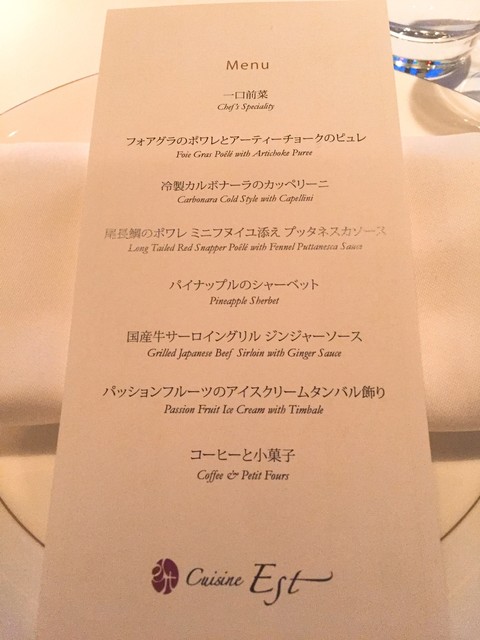 Menu
一口前菜
Chef's Speciality
フォアグラのポワレとアーティーチョークのピュレ
Foie Gras Poêlé with Artichoke Puree
冷製カルボナーラのカッペリーニ
Carbonara Cold Style with Capellini
尾長鯛のポワレ ミニフヌイユ添え プッタネスカソース
Long Tailed Red Snapper Poêlé with Fennel Puttanesca Sauce
パイナップルのシャーベット
Pineapple Sherbet
国産牛サーロイングリル ジンジャーソース
Grilled Japanese Beef Sirloin with Ginger Sauce
パッションフルーツのアイスクリームタンバル飾り
Passion Fruit Ice Cream with Timbale
コーヒーと小菓子
Coffee & Petit Fours
Cuisine Est